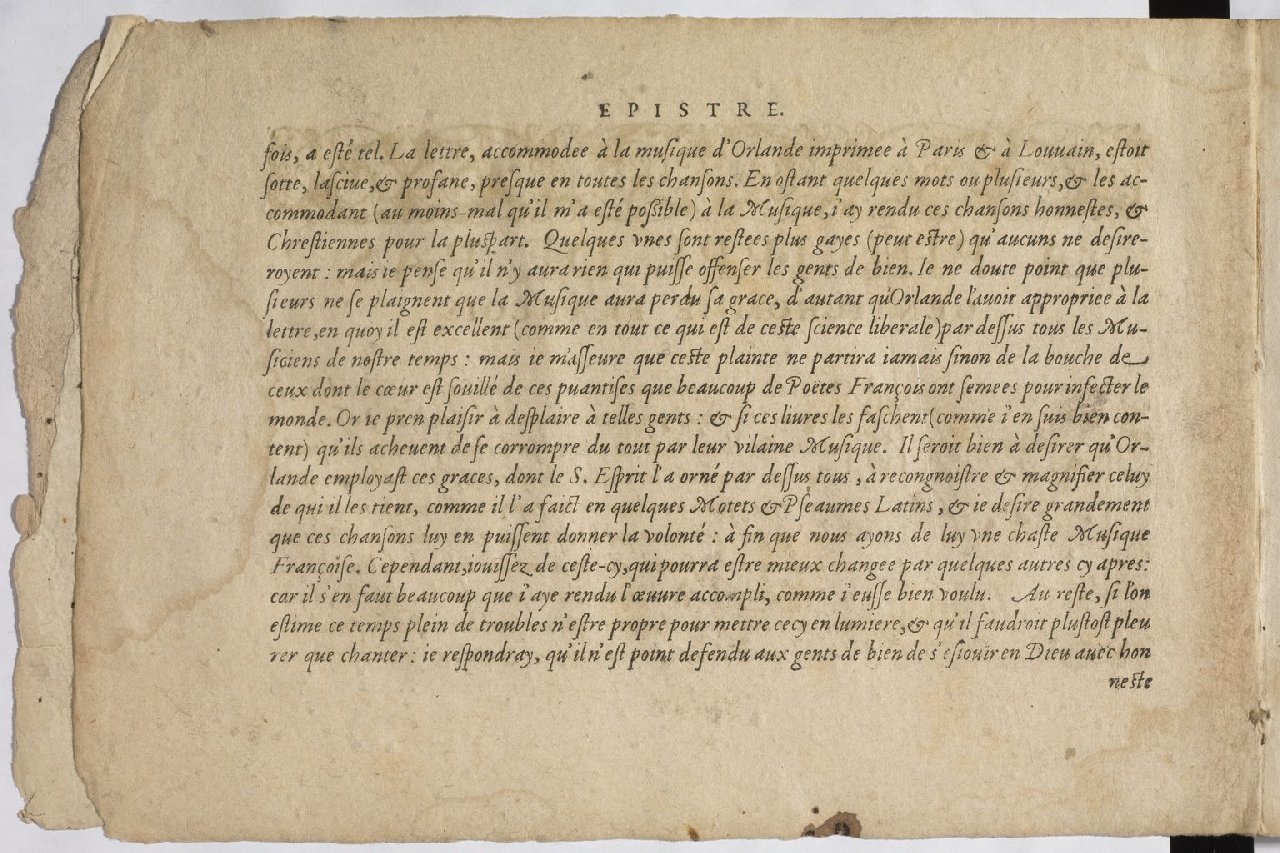 EPISTRE.
fois, a esté tel. La lettre, accommodee à la musique d'Orlande imprimee à Paris & à Louvain, estoit
sotte, lasciue,& profane, presque en toutes les chansons. En ostant quelques mots ou plusieurs,& les ac-
commodant (au moins mal qu'il m'a esté possible) à la Musique, i'ay rendu ces chansons honnestes, &
Chrestiennes pour la pluspart. Quelques vnes sont restees plus gayes (peut estre) qu'aucuns ne desire-
royent : mais ie pense qu'il n'y aura rien qui puisse offenser les gents de bien. Ie ne doute point que plu-
sieurs ne se plaignent que la Musique aura perdu sa grace, d'autant qu'Orlande l'auoit appropriee à la
lettre,en quoy il est excellent (comme en tout ce qui est de ceste science liberale)par dessus tous les Mu-
siciens de nostre temps : mais ie m'asseure que ceste plainte ne partira iamais sinon de la bouche de
ceux dont le cœur est souillé de ces puantises que beaucoup de Poëtes François ont semees pour infecter le
monde. Or ie pren plaisir à desplaire à telles gents : & si ces liures les faschent(comme i'en suis bien con-
tent) qu'ils acheuent de se corrompre du tout par leur vilaine Musique. Il seroit bien à desirer qu'Or-
lande employast ces graces, dont le S. Esprit l'a orné par dessus tous , à recongnoistre & magnifier celuy
de qui il les tient, comme il l'a faict en quelques Motets & Pseaumes Latins, & ie desire grandement
que ces chansons luy en puissent donner la volonté : à fin que nous ayons de luy vne chaste Musique
Françoise. Cependant,iouissez de ceste-cy,qui pourra estre mieux changee par quelques autres cy apres:
car il s'en faut beaucoup que i'aye rendu l'œuure accompli, comme i'eusse bien voulu. Au reste, si l'on
estime ce temps plein de troubles n'estre propre pour mettre cecy en lumiere,& qu'il faudroit plustost pleu
rer que chanter : ie respondray, qu'il n'est point defendu aux gents de bien de s'esiouir en Dieu auec hon
neste